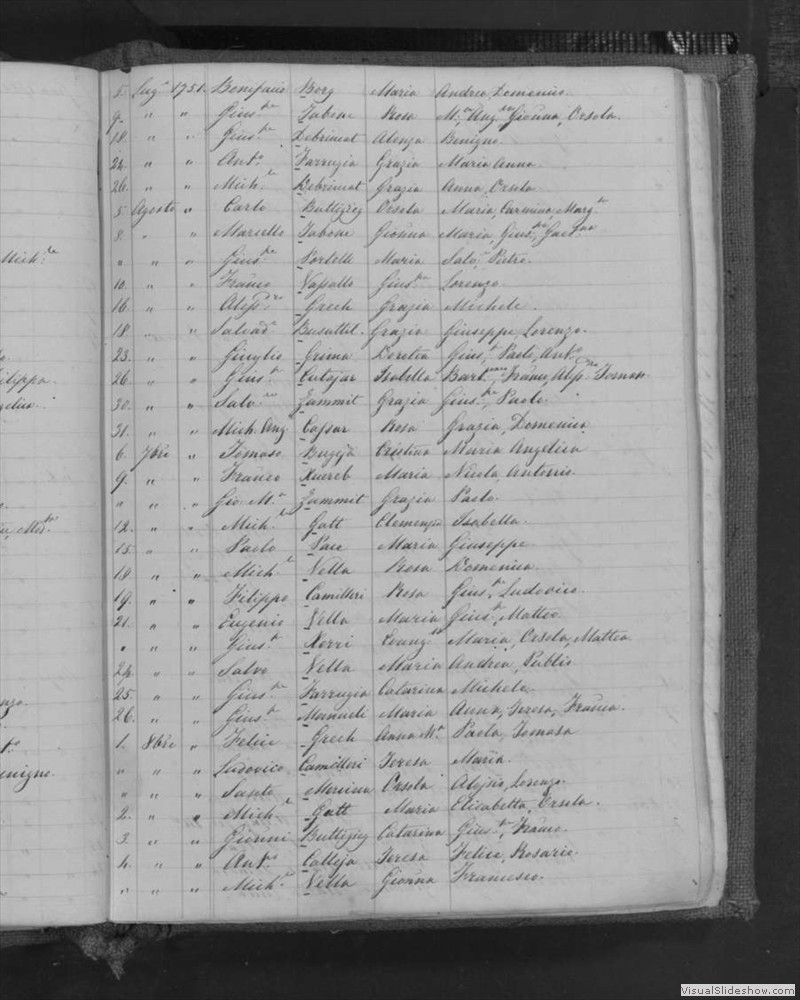 Mich.le
ilippa.
enigno.
5. Lug.o 1751. Bonifacio Borg Maria Andrea, Domenico.
9. " " Gius.pe Tabone Rosa M.a Ang.ca Gionna, Orsola.
18. " " Gius.pe Debrincat Alonza Benigno.
24. " " Ant.o Farrugia Grazia Maria Anna.
26. " " Mich.l Debrincat Grazia Anna, Orsola
5. Agosto " Carlo Buttigieg Orsola Maria, Carmina, Marg.ta
8. " " Marcello Tabone Gionna Maria, Gius.pe, Gaet.no
" " " Gius.pe Portelli Maria Salv.e Pietro.
10. " " Franco Vassallo Gius.pa Lorenzo.
16. " " Aless.dro Grech Grazia Michele.
18. " " Salvad.e Busuttil. Grazia Giuseppe, Lorenzo.
23. " " Grima Gius.e Paolo, Ant.o
26. " " Gius.e Cutajar Isabella Franco, Aless.dro
30. " " Salv.re Zammit Grazia Gius.pe, Paolo.
31. " " Mich. Ang. Cassar Rosa Grazia, Domenica
6. 7bre " Tomaso Bugeja Cristina Maria Angelica
9. " " Franco Xuereb Maria Nicola, Antonio.
" " " Gio. M.a Zammit Grazia Paolo.
12. " " Mich.l Gatt Clemenzia Isabella.
15. " " Paolo Pace Maria Giuseppe
18. " " Mich.l Vella Rosa Domenica.
19. " " Filippo Camilleri Rosa Gius.e, Ludovico.
21. " " Eugenio Vella Maria Gius.e, Matteo
" " " Gius.e Maria, Orsola, Matteo
24. " " Salvo Vella Maria Andrea, Publio
25. " " Gius.pe Farrugia Catarina Michele.
26. " " Gius.e Mamueli Maria Anna, Teresa, Franca.
1. 8bre " Felice Grech Anna M.a Paola, Tomasa
" " " Ludovico Camilleri Teresa Maria.
" " " Santo Mercieca Orsola Lorenzo.
2. " " Mich.l Gatt Maria Elisabetta, Orsola.
3. " " Gionni Buttigieg Catarina Gius.e, Franco.
4. " " Ant.o Calleja Teresa Felice, Rosario.
" " " Mich.l Vella Gionna Francesco.
VisualSlideshow.com